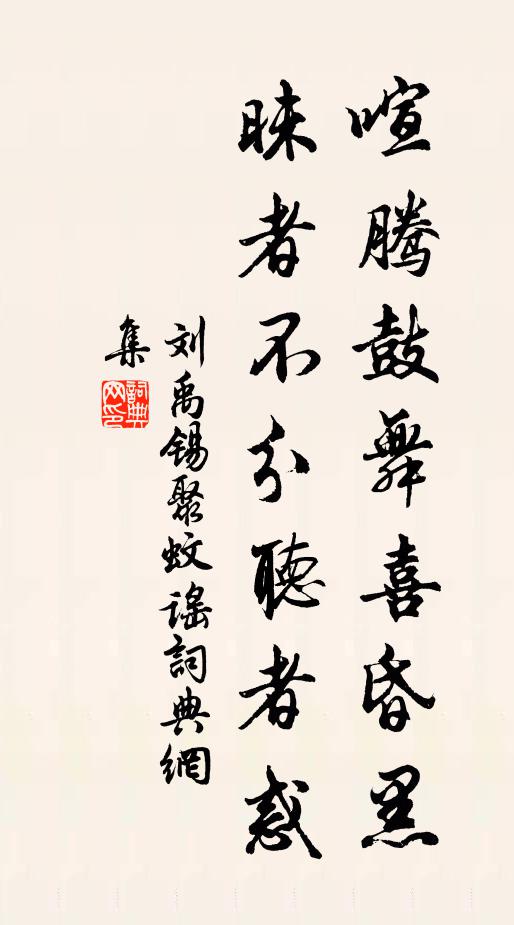 喧腾鼓舞喜昏黑
昧者不分聽者惑
刘禹锡聚蚊谣詞典網
集
詞典网印